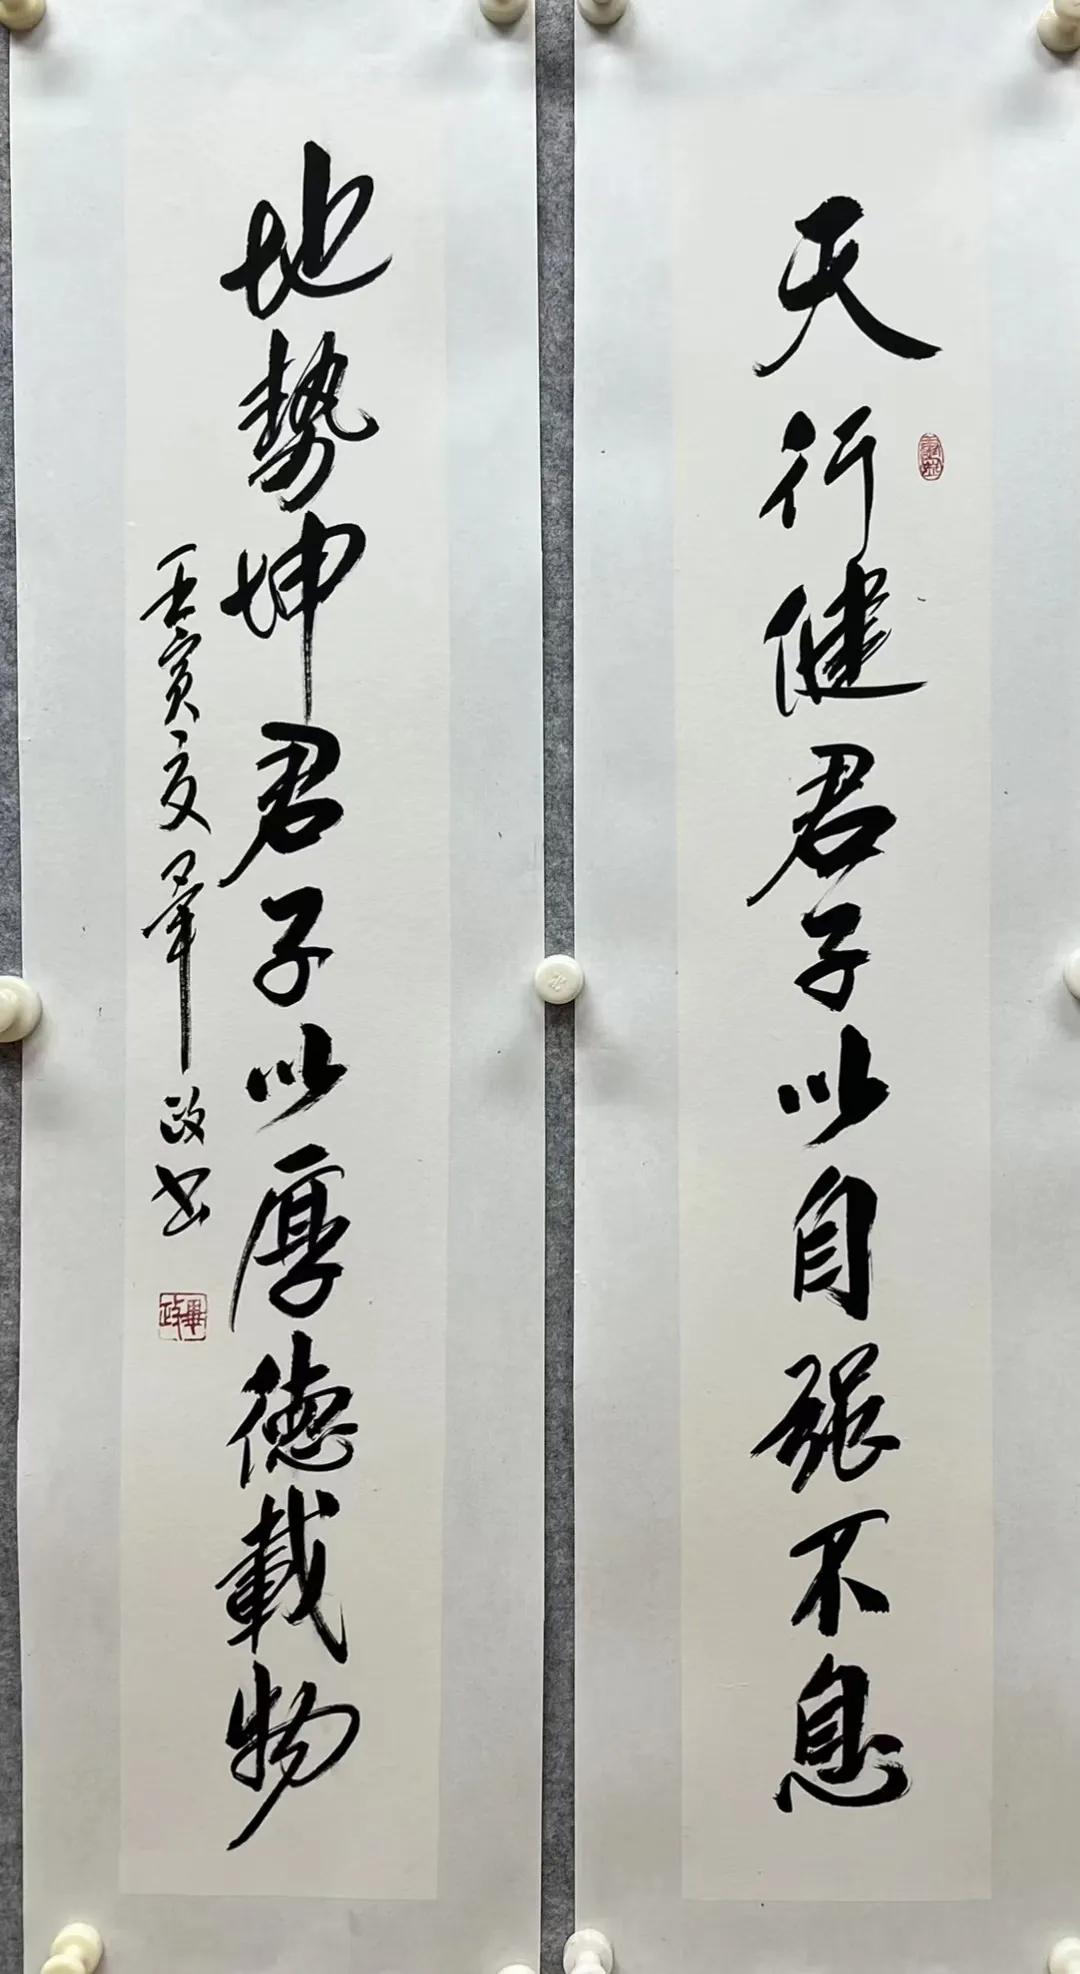 天行健君子以自强不息
地勢坤君子以厚德載物
壬寅夏畢政书
畢政